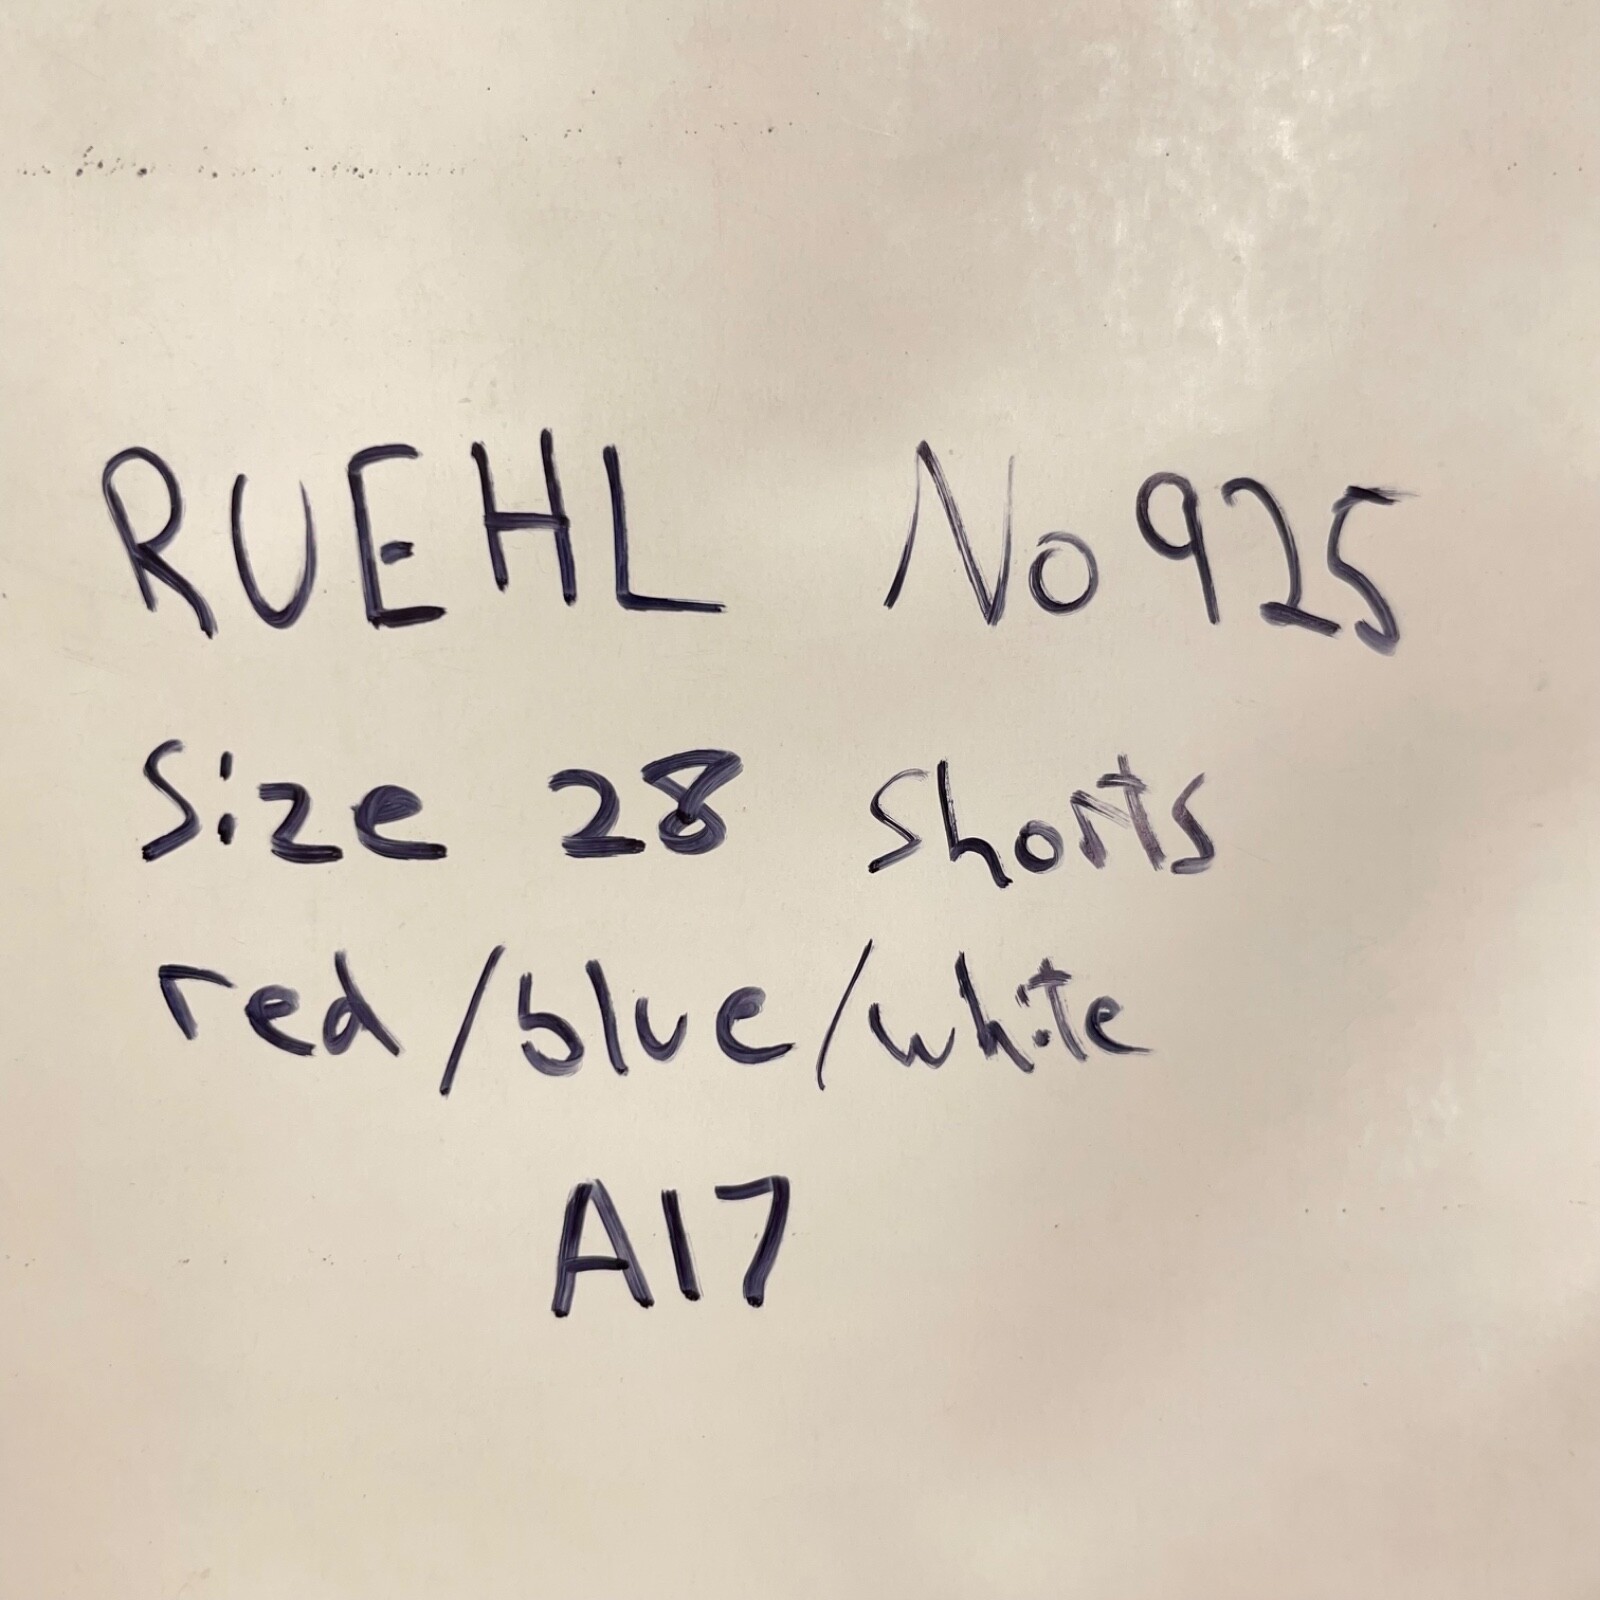 RUEHL No 925
Size 28 shorts
red/blue/white
A17